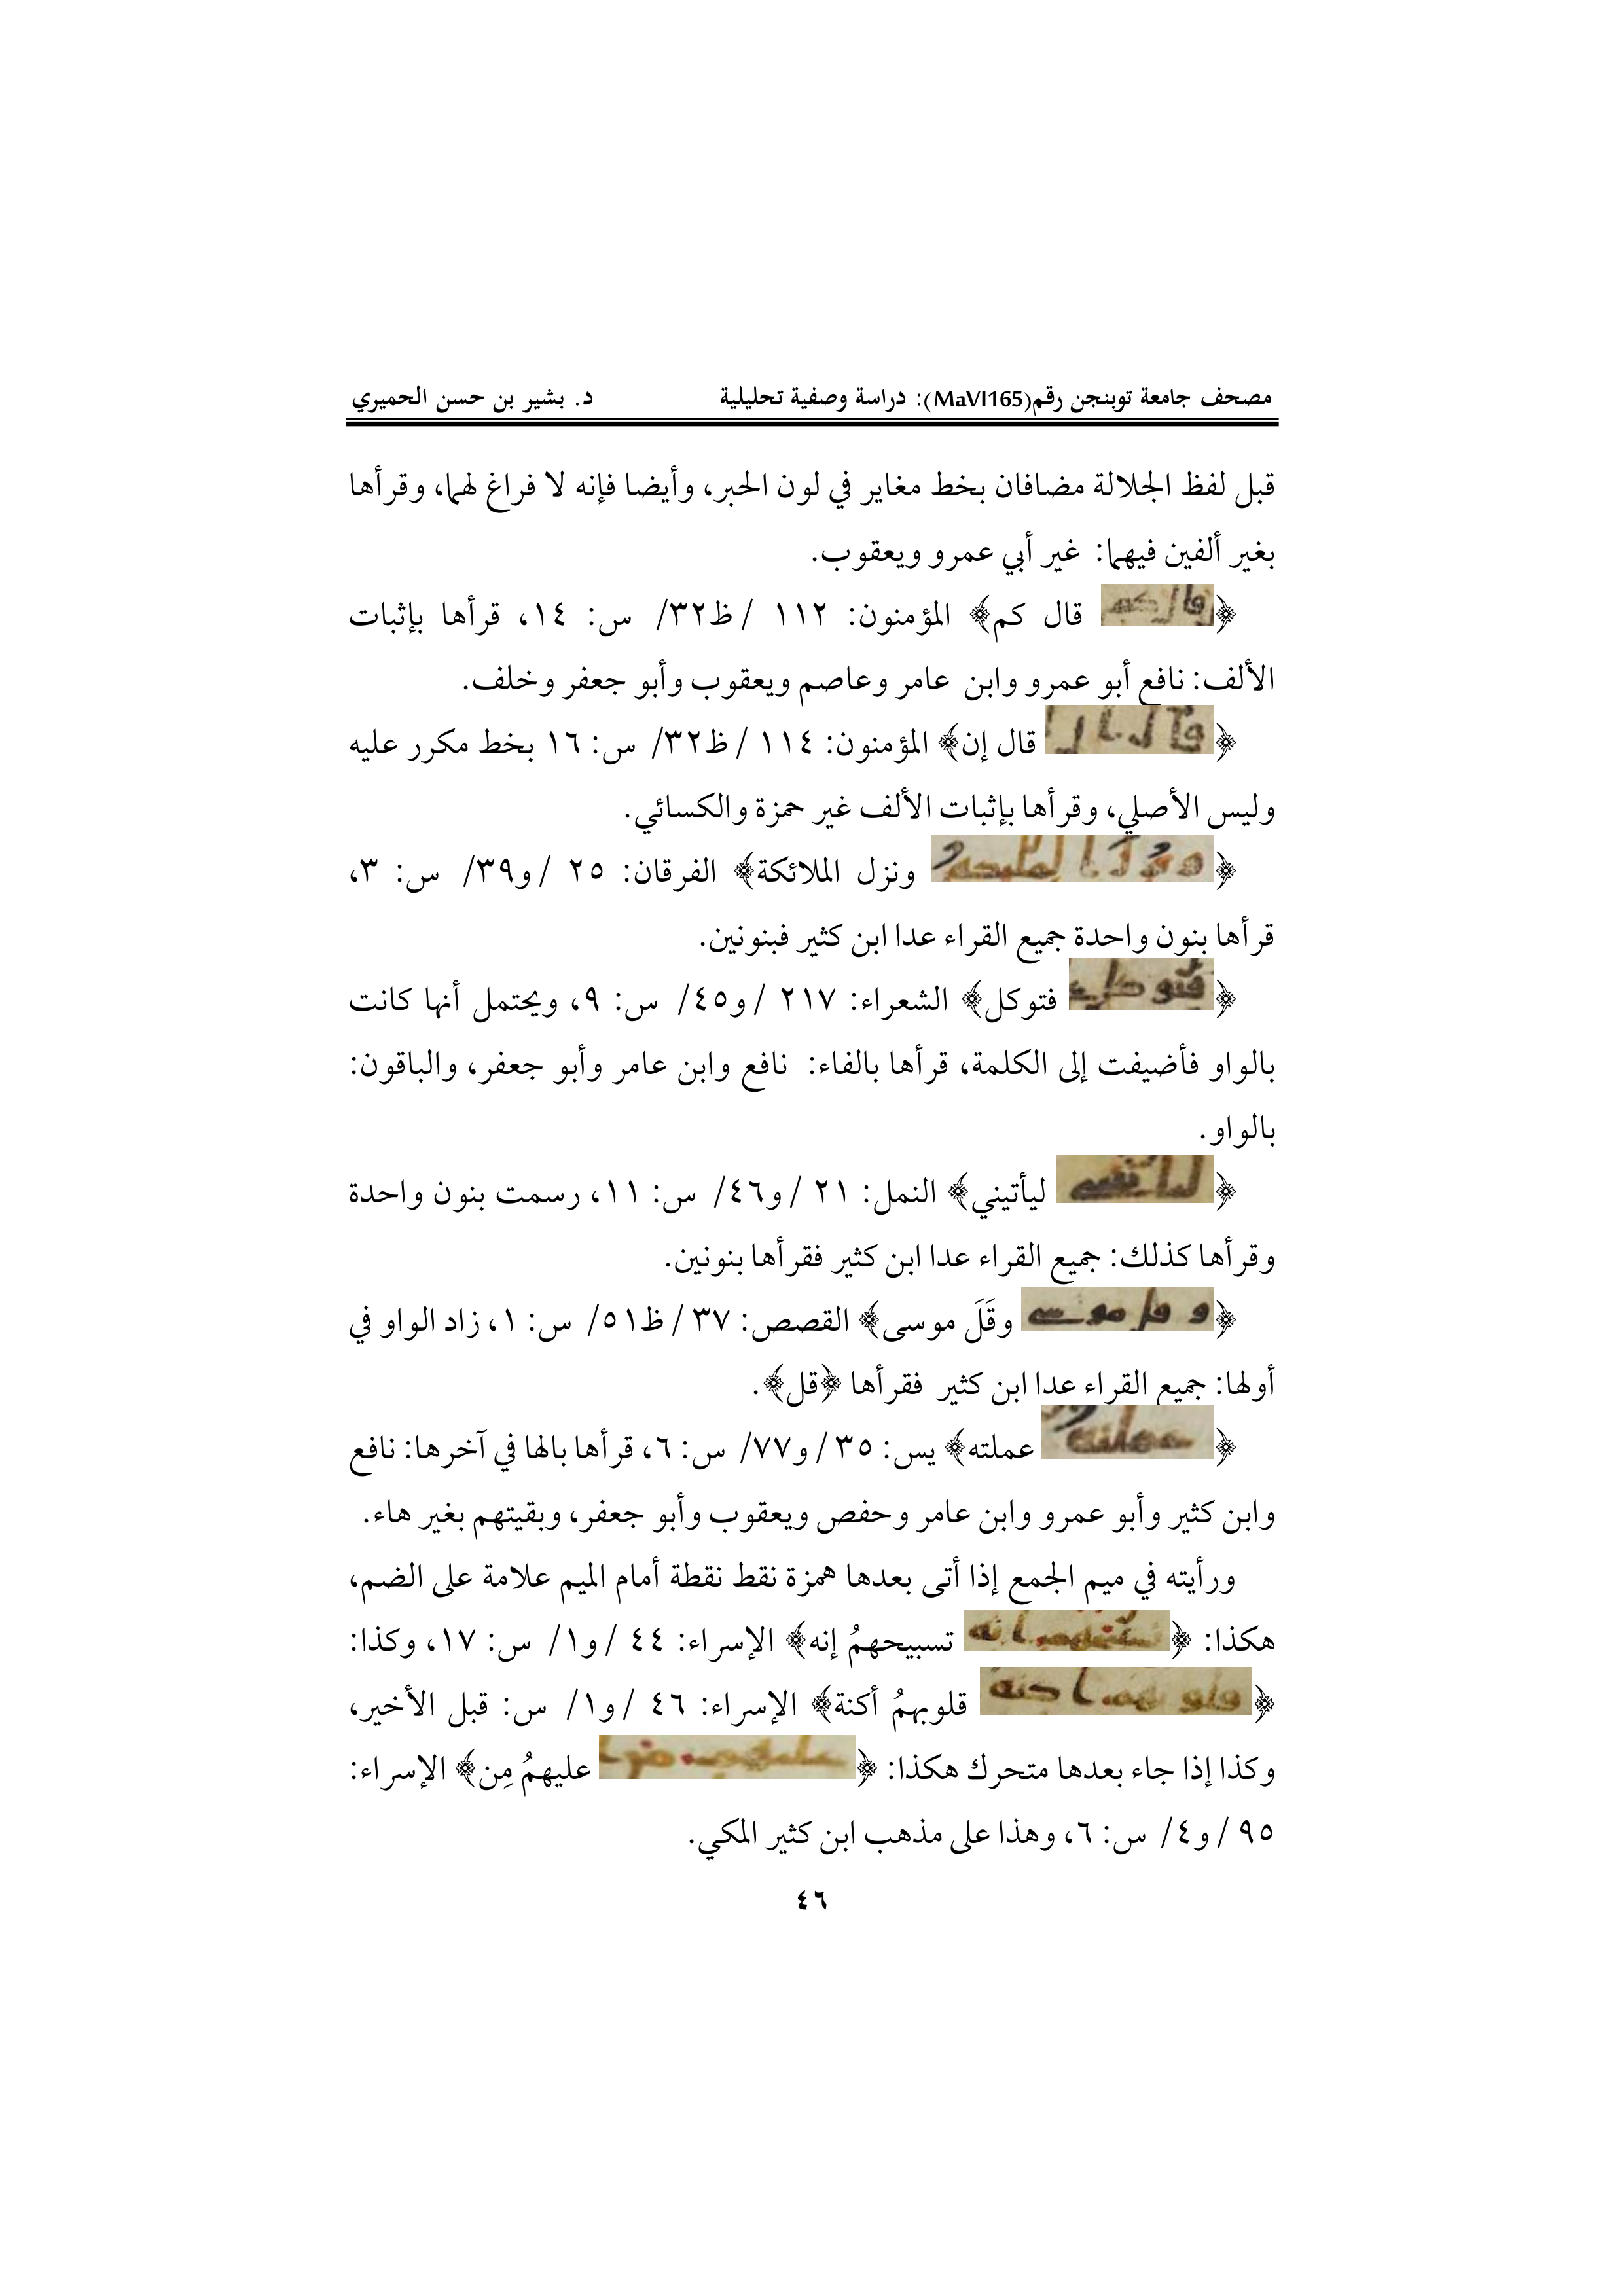 مصحف جامعة توبنجن رقم(MaVI165): دراسة وصفية تحليلية د. بشير بن حسن الحميري
قبل لفظ الجلالة مضافان بخط مغاير في لون الحبر، وأيضا فإنه لا فراغ لهما، وقرأها
بغير ألفين فيهما: غير أبي عمرو ويعقوب.
﴿قال كم قال كم﴾ المؤمنون: ١١٢ / ظ٣٢/ س: ١٤، قرأها بإثبات
الألف: نافع أبو عمرو وابن عامر وعاصم ويعقوب وأبو جعفر وخلف.
﴿قال إن﴾ المؤمنون: ١١٤ / ظ٣٢/ س: ١٦ بخط مكرر عليه
وليس الأصلي، وقرأها بإثبات الألف غير حمزة والكسائي.
﴿ونزل الملائكة﴾ الفرقان: ٢٥ / و٣٩/ س: ٣،
قرأها بنون واحدة جميع القراء عدا ابن كثير فبنونين.
﴿فتوكل فتوكل﴾ الشعراء: ٢١٧ / و٤٥/ س: ٩، ويحتمل أنها كانت
بالواو فأضيفت إلى الكلمة، قرأها بالفاء: نافع وابن عامر وأبو جعفر، والباقون:
بالواو.
﴿ليأتيني﴾ النمل: ٢١ / و٤٦/ س: ١١، رسمت بنون واحدة
وقرأها كذلك: جميع القراء عدا ابن كثير فقرأها بنونين.
﴿وقَلَ موسى﴾ القصص: ٣٧ / ظ٥١/ س: ١، زاد الواو في
أولها: جميع القراء عدا ابن كثير فقرأها ﴿قل﴾.
﴿عملته﴾ يس: ٣٥ / و٧٧/ س: ٦، قرأها بالها في آخرها: نافع
وابن كثير وأبو عمرو وابن عامر وحفص ويعقوب وأبو جعفر، وبقيتهم بغير هاء.
ورأيته في ميم الجمع إذا أتى بعدها همزة نقط نقطة أمام الميم علامة على الضم،
هكذا: ﴿تسبيحهمُ إنه﴾ الإسراء: ٤٤ / و١/ س: ١٧، وكذا:
﴿قلوبهمُ أكنة﴾ الإسراء: ٤٦ / و١/ س: قبل الأخير،
وكذا إذا جاء بعدها متحرك هكذا: ﴿عليهمُ مِن﴾ الإسراء:
٩٥ / و٤/ س: ٦، وهذا على مذهب ابن كثير المكي.
٤٦